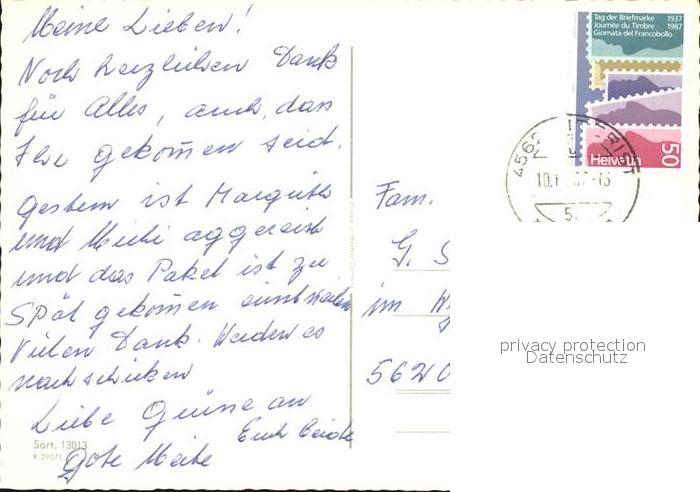 Meine Lieben!
Noch herzlichen Dank
für Alles, auch, dass
Ihr gekom̄en seid.
Gestern ist Margrith
und Michi aggereist
und das Paket ist zu
Spät gekom̄en einstweilen
Vielen Dank. Werden es
nachschicken
Liebe Grüsse an
Euch beide
Sort. 13013
R 29071
Tag der Briefmarke 1937
Journée du Timbre 1987
Giornata del Francobollo
Helvetia 50
4562
10.
-13
5
Fam.
G. S
im
5620
privacy protection
Datenschutz